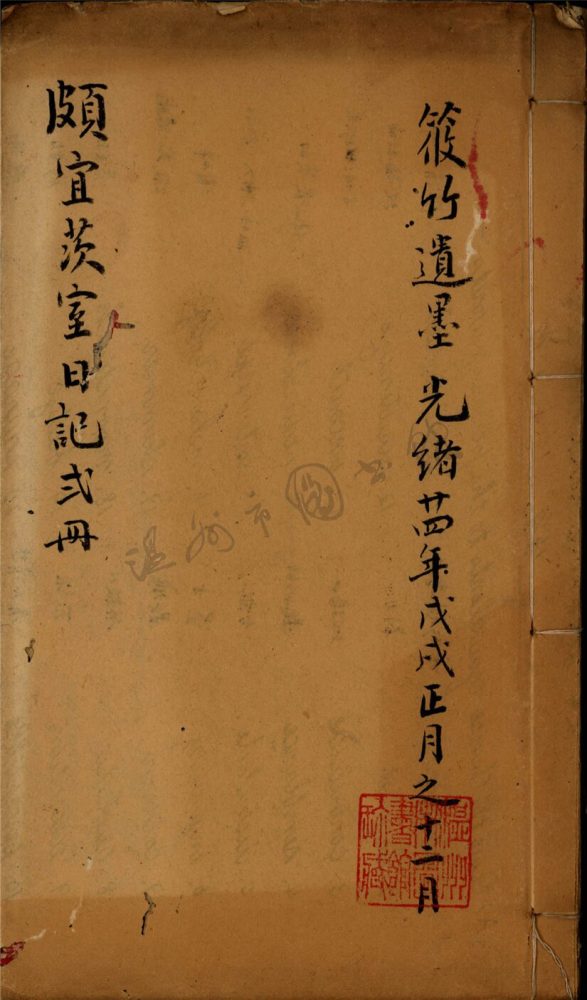 筱竹遺墨 光緒廿四年戊戌正月之十二月
頗宜茨室日記弍冊
温州市圖書館
温州市圖書館所藏